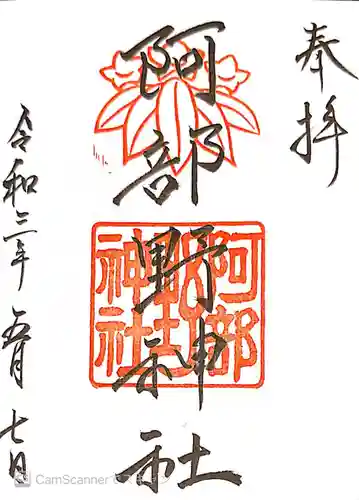 奉拝
阿部野神社
阿部野神社
令和三年五月七日
CamScanner